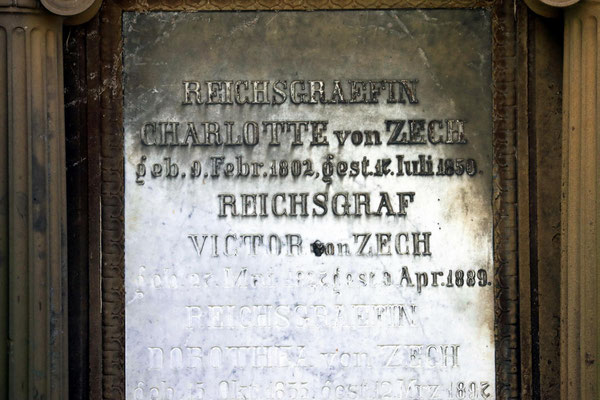 REICHSGRAEFIN
CHARLOTTE von ZECH
geb. 9. Febr. 1802, gest. 17. Juli 1850.
REICHSGRAF
VICTOR von ZECH
gest Apr. 1889.
REICHSGRAEFIN
von ZECH
geb. 5. Okt. gest. 12 Mrz. 1892